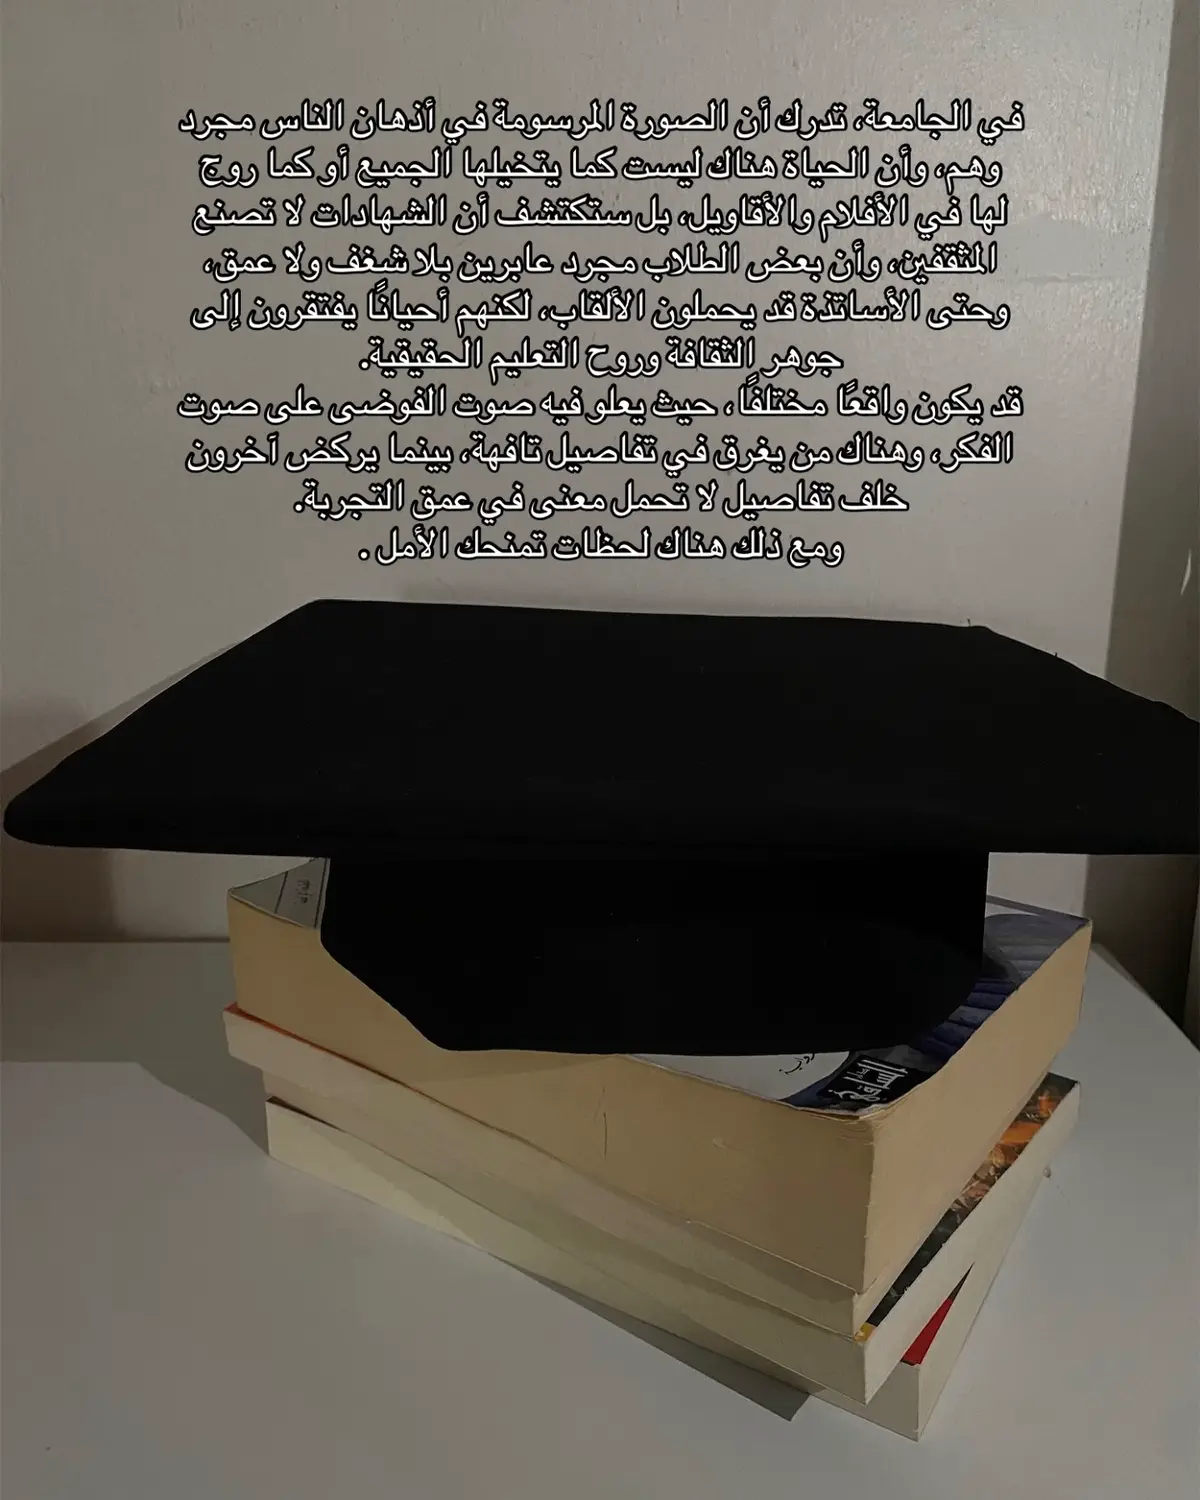 في الجامعة، تدرك أن الصورة المرسومة في أذهان الناس مجرد
وهم، وأن الحياة هناك ليست كما يتخيلها الجميع أو كما روج
لها في الأفلام والأقاويل، بل ستكتشف أن الشهادات لا تصنع
المثقفين، وأن بعض الطلاب مجرد عابرين بلا شغف ولا عمق،
وحتى الأساتذة قد يحملون الألقاب، لكنهم أحيانًا يفتقرون إلى
جوهر الثقافة وروح التعليم الحقيقية.
قد يكون واقعًا مختلفًا، حيث يعلو فيه صوت الفوضى على صوت
الفكر، وهناك من يغرق في تفاصيل تافهة، بينما يركض آخرون
خلف تفاصيل لا تحمل معنى في عمق التجربة.
ومع ذلك هناك لحظات تمنحك الأمل .